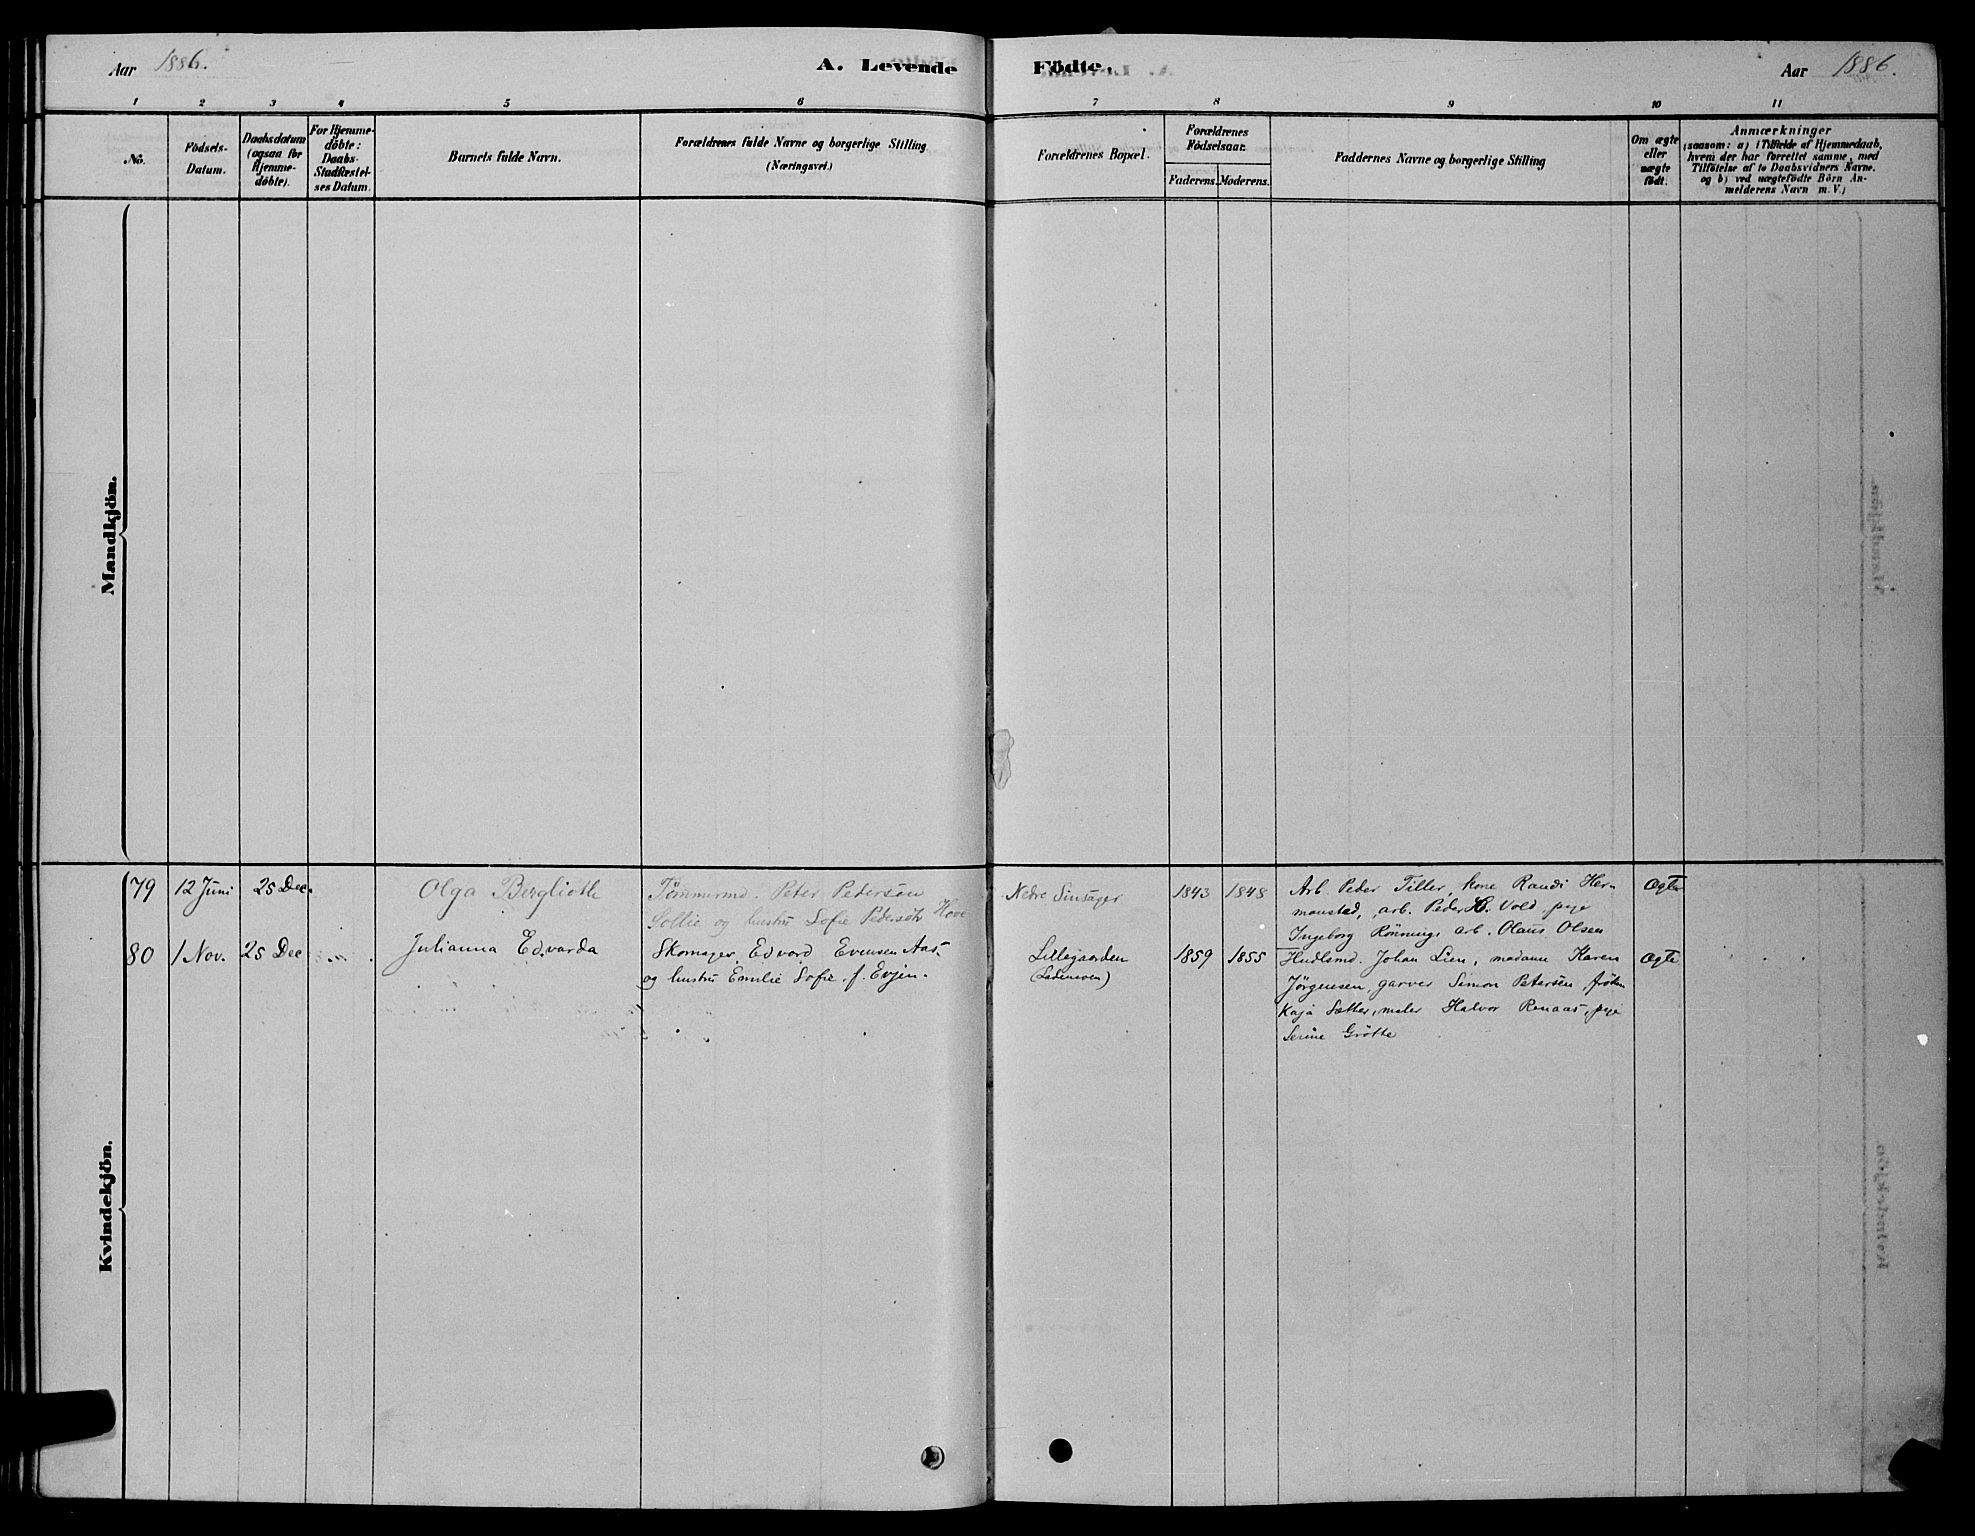 Aar 1886.
A. Levende Födte.
Aar 1886.
1 2 3 4 5 6 7 8 9 10 11
No.
Födsels-
Datum.
Daabsdatum
(ogsaa for
Hjemme-
döbte).
For Hjemme-
döbte:
Daabs-
Stadfæstel-
ses Datum.
Barnets fulde Navn.
Forældrenes fulde Navne og borgerlige Stilling
(Næringsvei.)
Forældrenes Bopæl.
Forældrenes
Födselsaar.
Faderens. Moderens.
Faddernes Navne og borgerlige Stilling
Om ægte
eller
uægte
födt.
Anmærkninger
(saasom: a) i Tilfælde af Hjemmedaab,
hvem der har forrettet samme, med
Tilföielse af to Daabsvidners Navne.
og b) ved uægtefödte Börn An-
melderens Navn m. V.)
Mandkjön.
Kvindekjön.
79 12 Juni 25 Dec. Olga Bergliotte
Tömmermd. Peter Petersen
Sollie og hustru Sofie Pedersdt. Hove
Nedre Sinsager
1843 1848
Arb. Peder Tiller, kone Randi Her-
manstad, arb. Peder H. Vold, pige
Ingeborg Rönning, arb. Olaus Olsen
Ægte
80 1 Nov. 25 Dec Julianna Edvarda
Skomager Edvard Evensen Aas
og hustru Emilie Sofie f. Evjen.
Lillegaarden
(Lademoen)
1859 1855
Hndlsmd. Johan Lien, madame Karen
Jörgensen, garver Simon Petersen, fröken
Kaja Sæther, maler Halvor Renaas, pige
Serine Grötte
Ægte